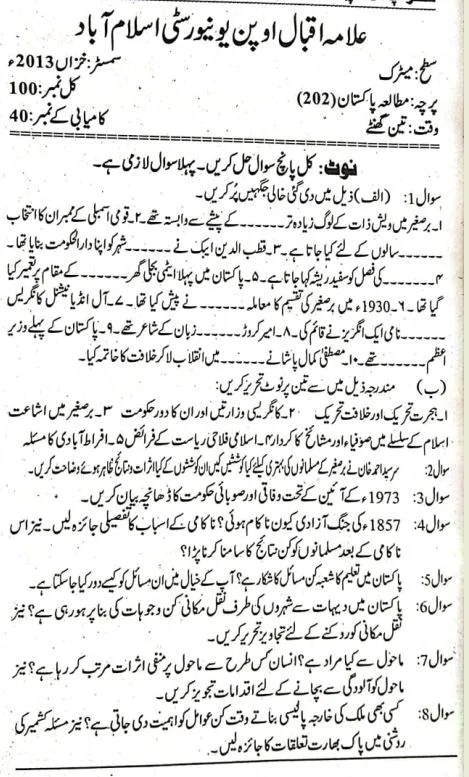 علامہ اقبال اوپن یونیورسٹی اسلام آباد
سطح: میٹرک سمسٹر: خزاں 2013ء
پرچہ: مطالعہ پاکستان (202) کل نمبر: 100
وقت: تین گھنٹے کامیابی کے نمبر: 40
نوٹ: کل پانچ سوال حل کریں۔ پہلا سوال لازمی ہے۔
سوال 1: (الف) ذیل میں دی گئی خالی جگہیں پُر کریں۔
۱۔ برصغیر میں ویش ذات کے لوگ زیادہ تر ۔۔۔۔۔۔ کے پیشے سے وابستہ تھے۔ ۲۔ قومی اسمبلی کے ممبران کا انتخاب
۔۔۔۔۔۔ سالوں کے لئے کیا جاتا ہے۔ ۳۔ قطب الدین ایبک نے ۔۔۔۔۔۔ شہر کو اپنا دارالحکومت بنایا تھا۔
۴۔ ۔۔۔۔۔۔ کی فصل کو سفید ریشہ کہا جاتا ہے۔ ۵۔ پاکستان میں پہلا ایٹمی بجلی گھر ۔۔۔۔۔۔ کے مقام پر تعمیر کیا
گیا تھا۔ ۶۔ 1930ء میں برصغیر کی تقسیم کا معاملہ ۔۔۔۔۔۔ نے پیش کیا تھا۔ ۷۔ آل انڈیا نیشنل کانگریس
۔۔۔۔۔۔ نامی ایک انگریز نے قائم کی۔ ۸۔ امیر کروڑ ۔۔۔۔۔۔ زبان کے شاعر تھے۔ ۹۔ پاکستان کے پہلے وزیر
اعظم ۔۔۔۔۔۔ تھے۔ ۱۰۔ مصطفیٰ کمال پاشا نے ۔۔۔۔۔۔ میں انقلاب لا کر خلافت کا خاتمہ کیا۔
(ب) مندرجہ ذیل میں سے تین پر نوٹ تحریر کریں:
۱۔ ہجرت تحریک اور خلافت تحریک ۲۔ کانگریسی وزارتیں اور ان کا دور حکومت ۳۔ برصغیر میں اشاعت
اسلام کے سلسلے میں صوفیاء اور مشائخ کا کردار ۴۔ اسلامی فلاحی ریاست کے فرائض ۵۔ افراط آبادی کا مسئلہ
سوال 2: سرسید احمد خان نے برصغیر کے مسلمانوں کی بہتری کیلئے کیا کوششیں کیں ان کوششوں کے کیا اثرات و نتائج ظاہر ہوئے وضاحت کریں۔
سوال 3: 1973ء کے آئین کے تحت وفاقی اور صوبائی حکومت کا ڈھانچہ بیان کریں۔
سوال 4: 1857ء کی جنگ آزادی کیوں ناکام ہوئی؟ ناکامی کے اسباب کا تفصیلی جائزہ لیں۔ نیز اس
ناکامی کے بعد مسلمانوں کو کن نتائج کا سامنا کرنا پڑا؟
سوال 5: پاکستان میں تعلیم کا شعبہ کن مسائل کا شکار ہے؟ آپ کے خیال میں ان مسائل کو کیسے دور کیا جا سکتا ہے۔
سوال 6: پاکستان میں دیہات سے شہروں کی طرف نقل مکانی کن وجوہات کی بنا پر ہو رہی ہے؟ نیز
نقل مکانی کو روکنے کے لئے تجاویز تحریر کریں۔
سوال 7: ماحول سے کیا مراد ہے؟ انسان کس طرح سے ماحول پر منفی اثرات مرتب کر رہا ہے؟ نیز
ماحول کو آلودگی سے بچانے کے لئے اقدامات تجویز کریں۔
سوال 8: کسی بھی ملک کی خارجہ پالیسی بناتے وقت کن عوامل کو اہمیت دی جاتی ہے؟ نیز مسئلہ کشمیر کی
روشنی میں پاک بھارت تعلقات کا جائزہ لیں۔